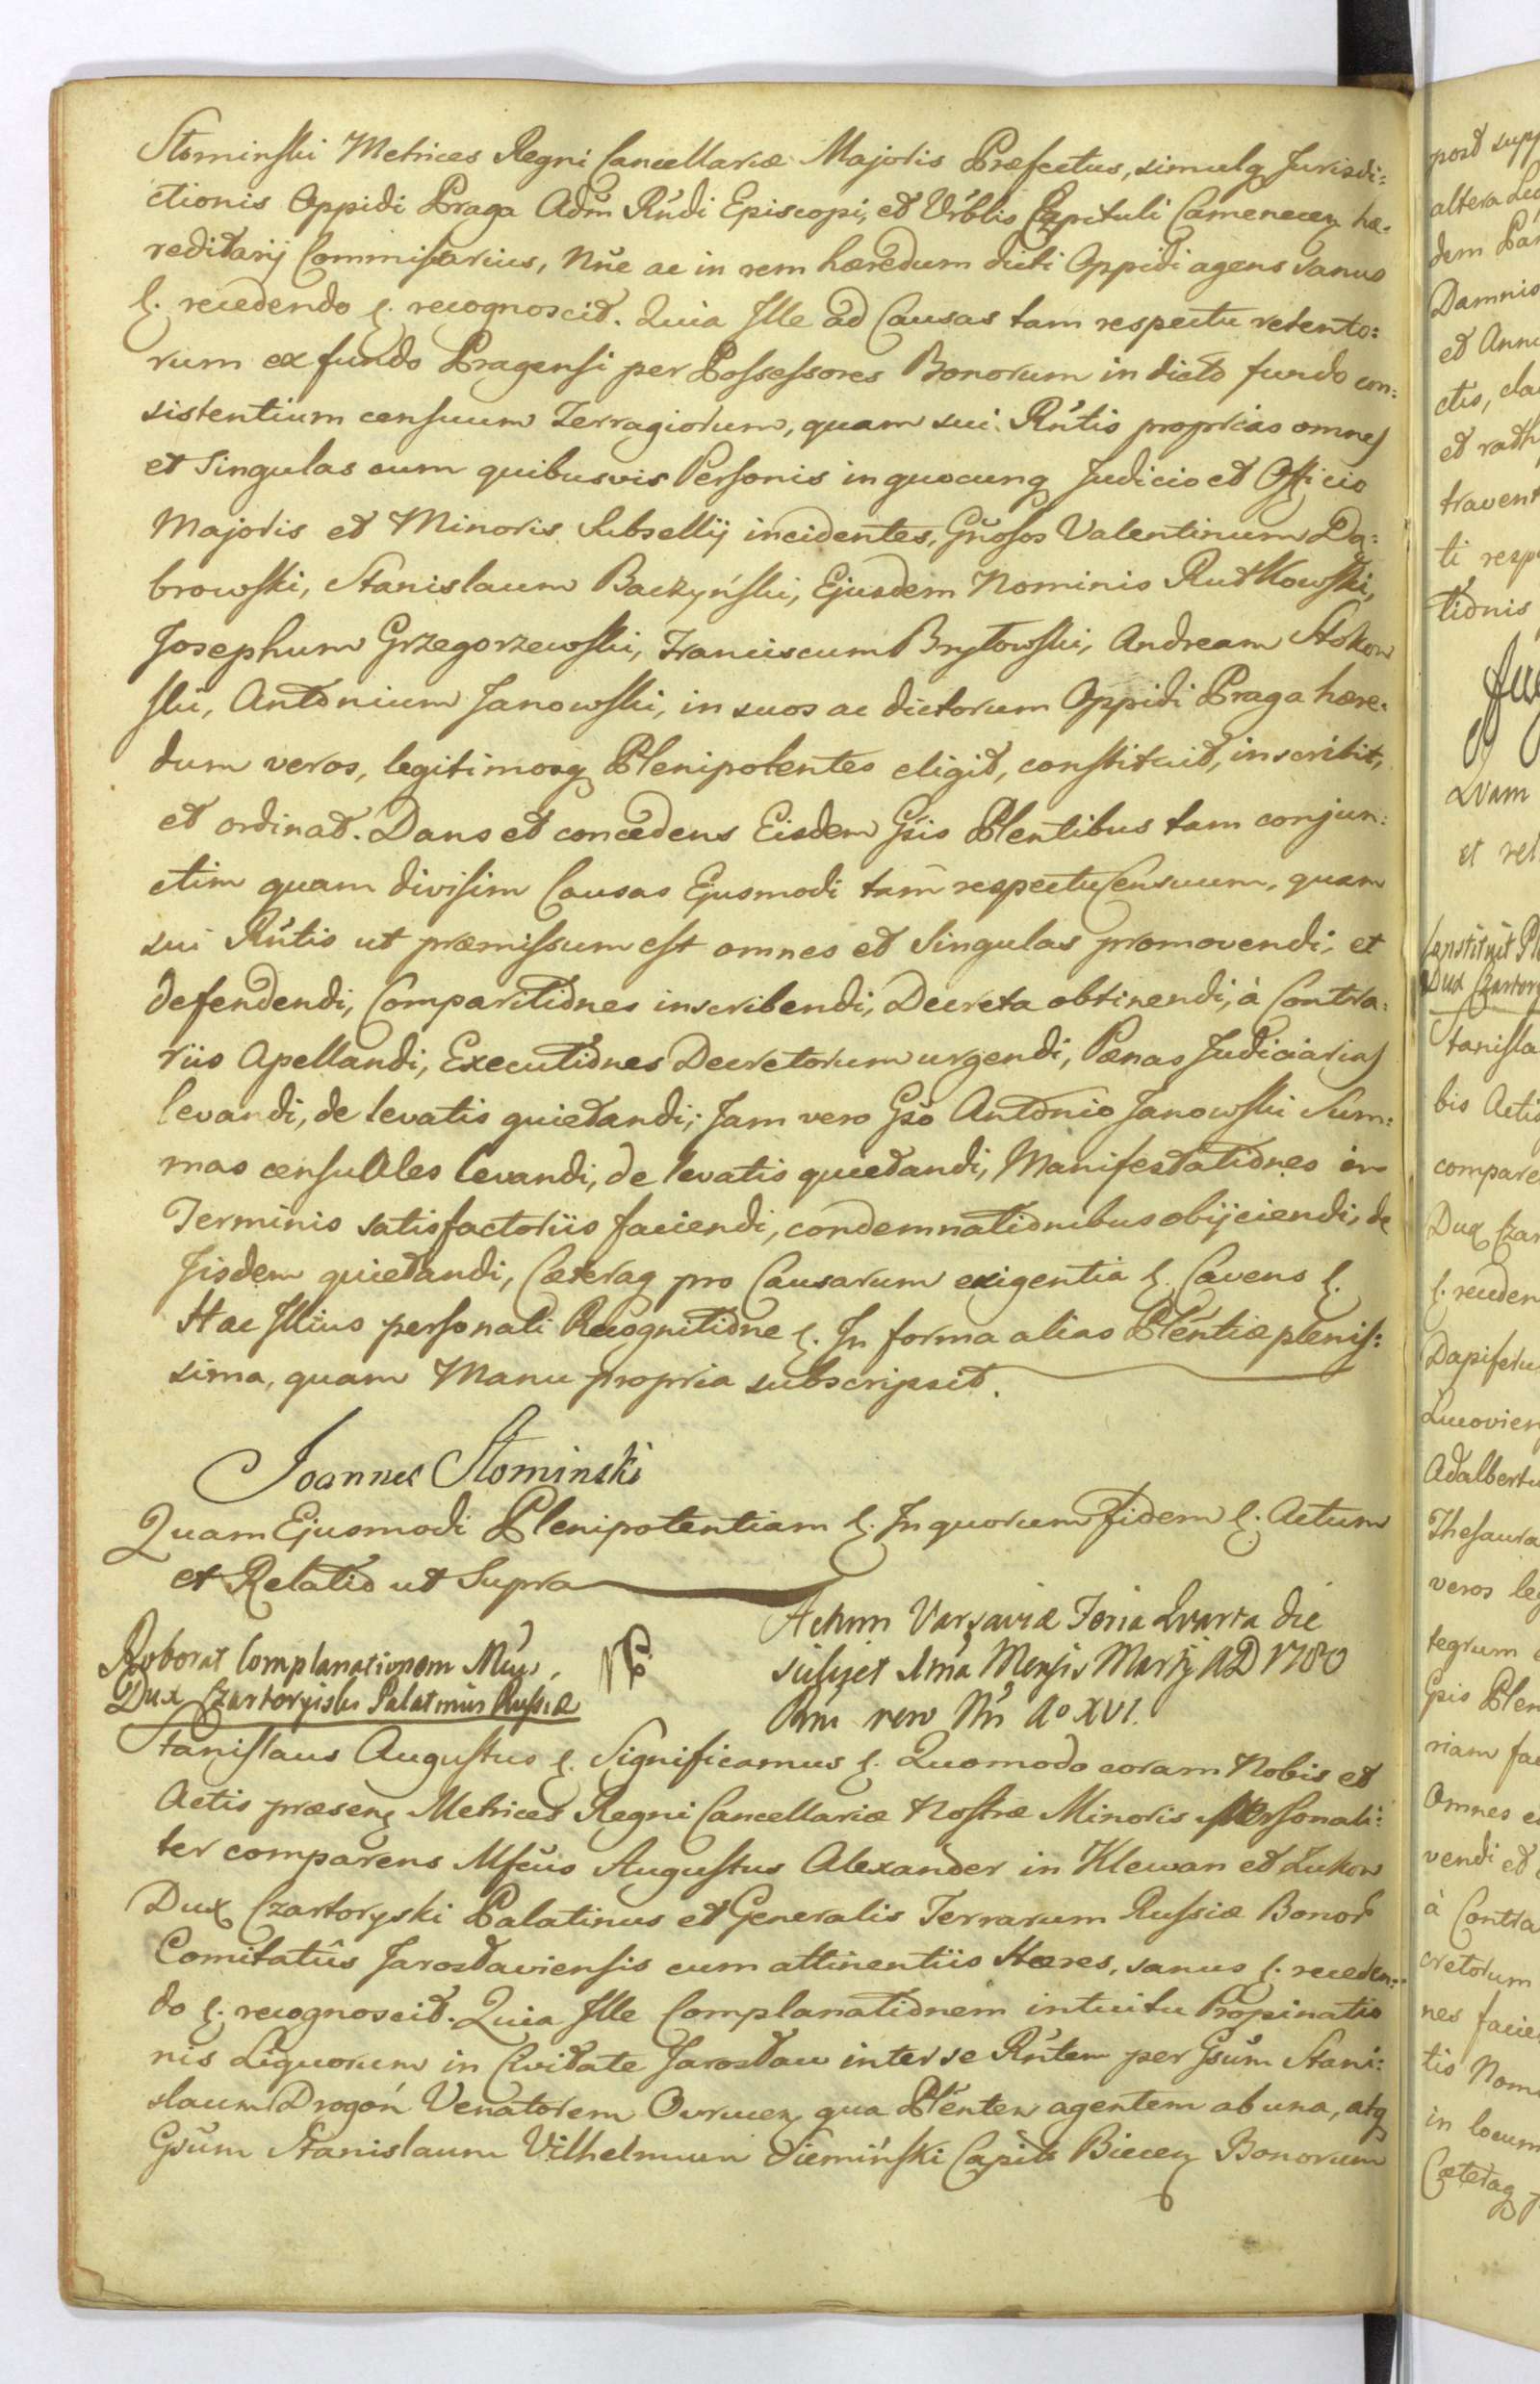 Słominski Metrices Regni Cancellariæ Majoris Præfectus, simulq Jurisdi:
ctionis Oppidi Praga Adm̃ Rñdi Episcopi, et Vrblis Capituli Camenecen hæ:
reditarij Commissarius, Nñe ac in rem hæredum dicti Oppidi agens sanus
&. recedendo &. recognoscit. Quia Ille ad Causas tam respectu retento:
rum ex fundo Pragensi per Possessores Bonorum in dicto fundo con:
sistentium censuum Terragiorum, quam sui Rñtis proprias omnes
et Singulas cum quibusvis Personis in quocunq Judicio et Officio
Majoris et Minoris Subsellij incidentes, Gñosos Valentinum Dą:
browski, Stanislaum Baczyński, Ejusdem Nominis Rutkowski,
Josephum Grzegorzewski, Franciscum Bryłowski, Andream Stokow
ski, Antonium Janowski, in suos ac dictorum Oppidi Praga hære:
dum veros, legitimosq Plenipotentes eligit, constituit, inscribit,
et ordinat. Dans et concedens Eisdem Gsis Plentibus tam conjun:
ctim quam divisim Causas Ejusmodi tam respectu Censuum, quam
sui Rñtis ut præmissum est omnes et Singulas promovendi, et
defendendi, Comparitiones inscribendi, Decreta obtinendi, à Contra:
riis Apellandi, Executiones Decretorum urgendi, Pænas Judiciarias
levandi, de levatis quietandi; Jam vero Gso Antonio Janowski Sum:
mas censuales levandi, de levatis quietandi, Manifestationes in
Terminis satisfactoriis faciendi, condemnationibus obijciendi, de
Jisdem quietandi, Cæteraq pro Causarum exigentia &. Cavens &.
Hac Illius personali Recognitione &. In forma alias Plẽntiæ plenis:
sima, quam Manu propria subscripsit.
Joannes Słominski
Quam Ejusmodi Plenipotentiam &. In quorum Fidem &. Actum
et Relatio ut Supra
Roborat Complanationem
Dux Czartoryiski Palatinus Russiæ
Actum Varsaviæ Feria Quarta die
Mensis Martij AD 1780
Rñi vero Nri Ao XVI.
Stanislaus Augustus &. Significamus &. Quomodo coram Nobis et
Actis præsen Metrices Regni Cancellariæ Nostræ Minoris personali:
ter comparens Mfcus Augustus Alexander in Klewan et Zukow
Dux Czartoryski Palatinus et Generalis Terrarum Russiæ Bonor
Comitatûs Jaroslaviensis cum attinentiis Hæres, sanus &. receden:
do &. recognoscit. Quia Ille Complanationem intuitu Propinatio
nis Liquorum in Civitate Jarosław inter se Rñtem per Gsũm Stani:
slaum Drogoń Venatorem Owrucen qua Plẽnten agentem ab una, atq
Gsũm Stanislaum Vilhelmum Siemiński Capit Biecen Bonorum